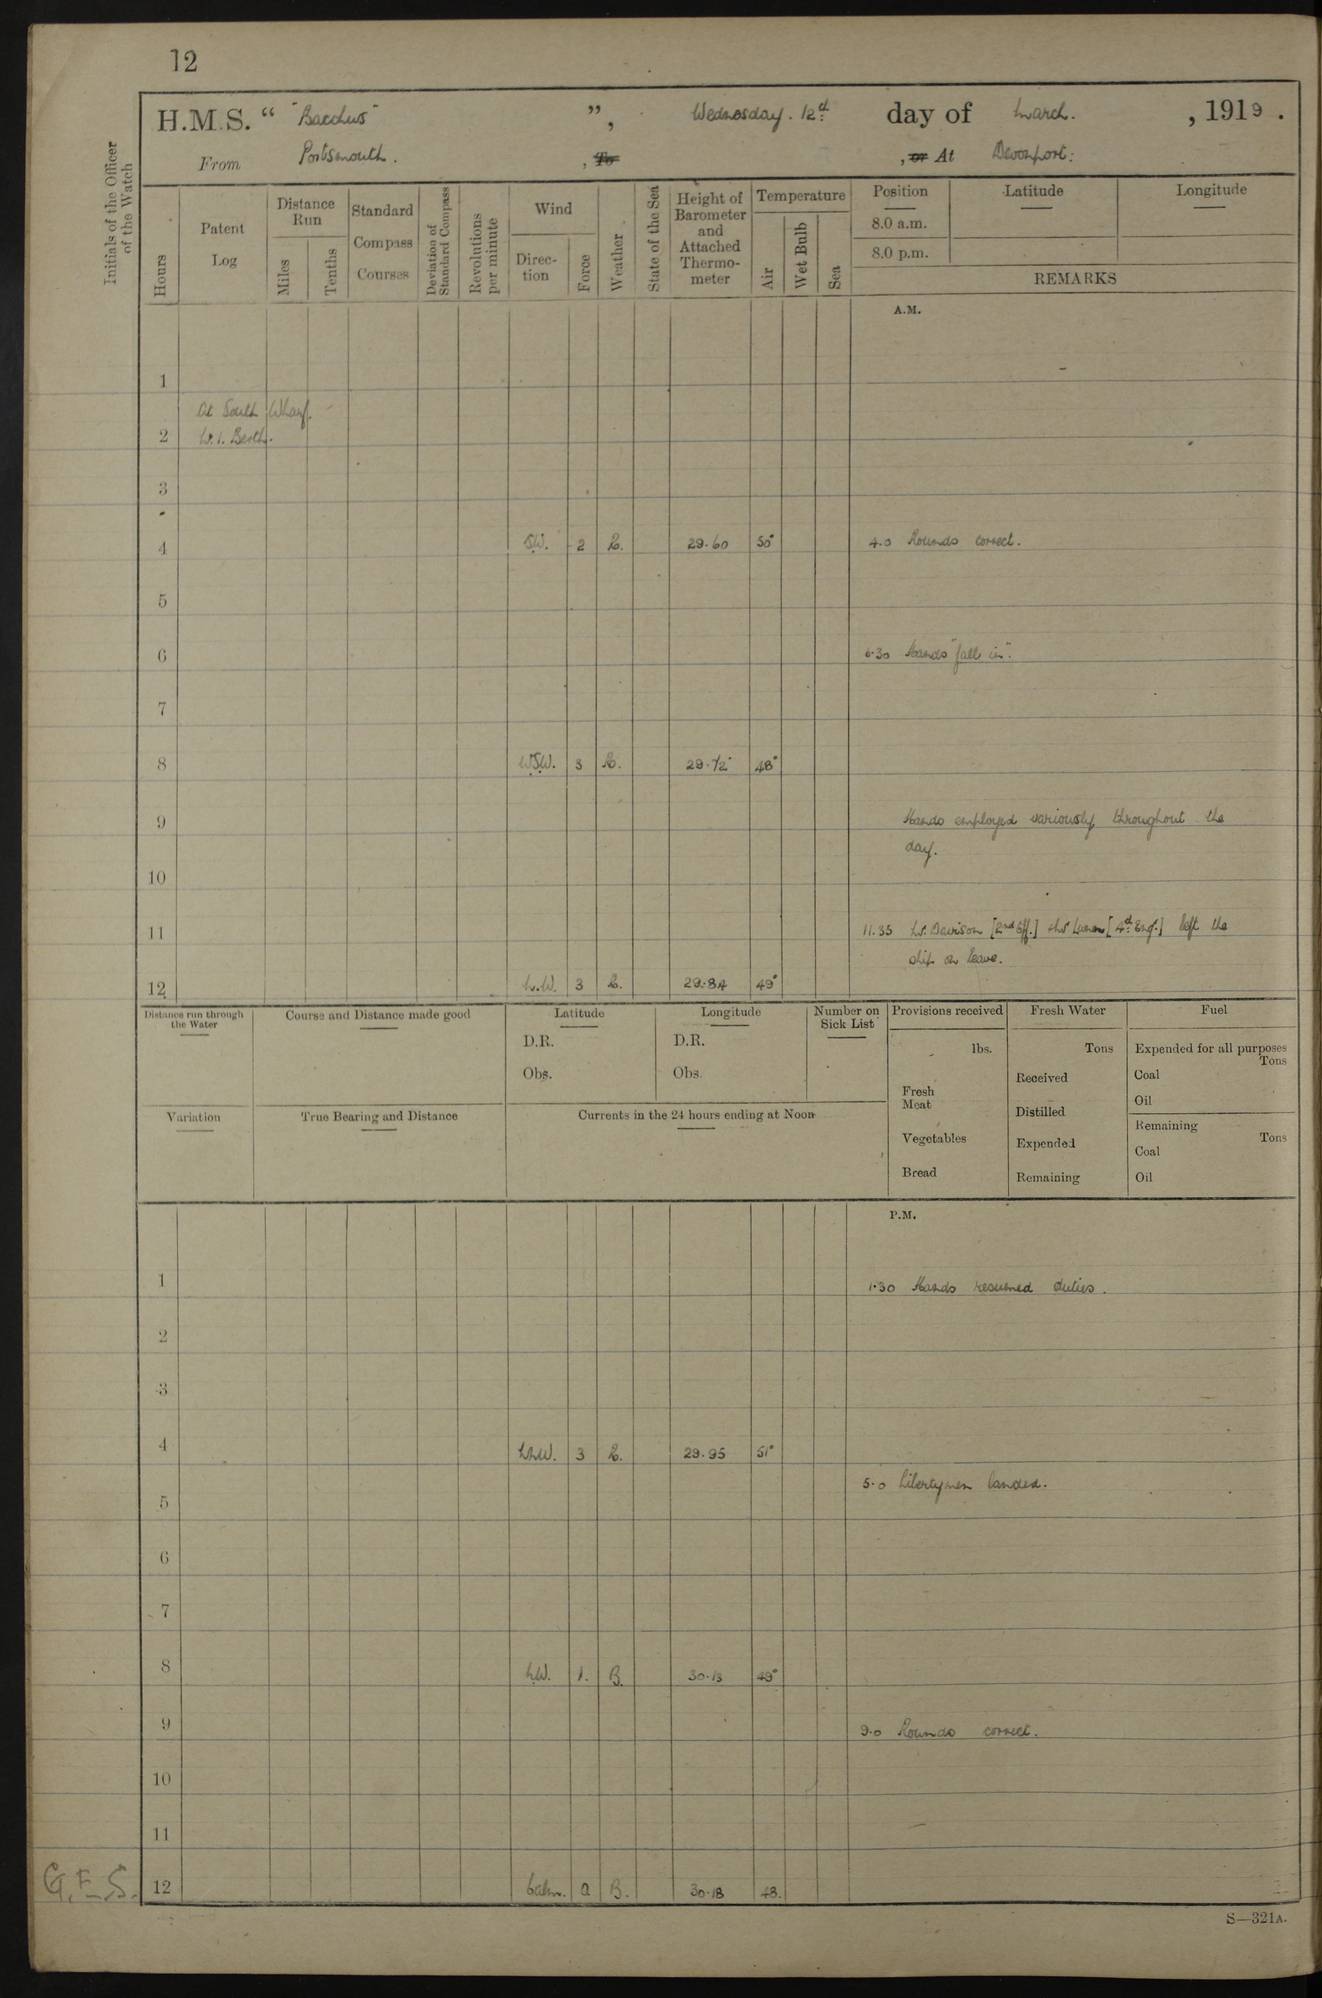 12
H.M.S. “ "Bacchus" ”, Wednesday. 12th day of March. , 1919.
From Portsmouth. , To , or At Devonport:
Initials of the Officer of the Watch
Hours
Patent Log
Distance Run
Miles
Tenths
Standard Compass Courses
Deviation of Standard Compass
Revolutions per minute
Wind
Direction
Force
Weather
State of the Sea
Height of Barometer and Attached Thermometer
Temperature
Air
Wet Bulb
Sea
Position Latitude Longitude
8.0 a.m.
8.0 p.m.
REMARKS
A.M.
1
At South Wharf.
2 No. 1. Berth.
3
4 SW. 2 C. 29.60 50° 4.0 Rounds correct.
5
6 6.30 Hands "fall in".
7
8 WSW. 3 C. 29.72 48°
9 Hands employed variously throughout the
day.
10
11 11.35 Mr. Davison [2nd Off.] [4th Eng.] left the
ship on leave.
12 N.W. 3 C. 29.84 49°
Distance run through the Water
Course and Distance made good
Latitude
D.R.
Obs.
Longitude
D.R.
Obs.
Number on Sick List
Provisions received
lbs.
Fresh Meat
Vegetables
Bread
Fresh Water
Tons
Received
Distilled
Expended
Remaining
Fuel
Expended for all purposes
Tons
Coal
Oil
Remaining
Tons
Coal
Oil
Variation
True Bearing and Distance
Currents in the 24 hours ending at Noon
P.M.
1 1.30 Hands resumed duties.
2
3
4 NNW. 3 C. 29.95 51°
5 5.0 Libertymen landed.
6
7
8 NW. 1. B. 30.13 49°
9 9.0 Rounds correct.
10
11
G.F.S. 12 Calm. 0 B. 30.18 48.
S—321A.